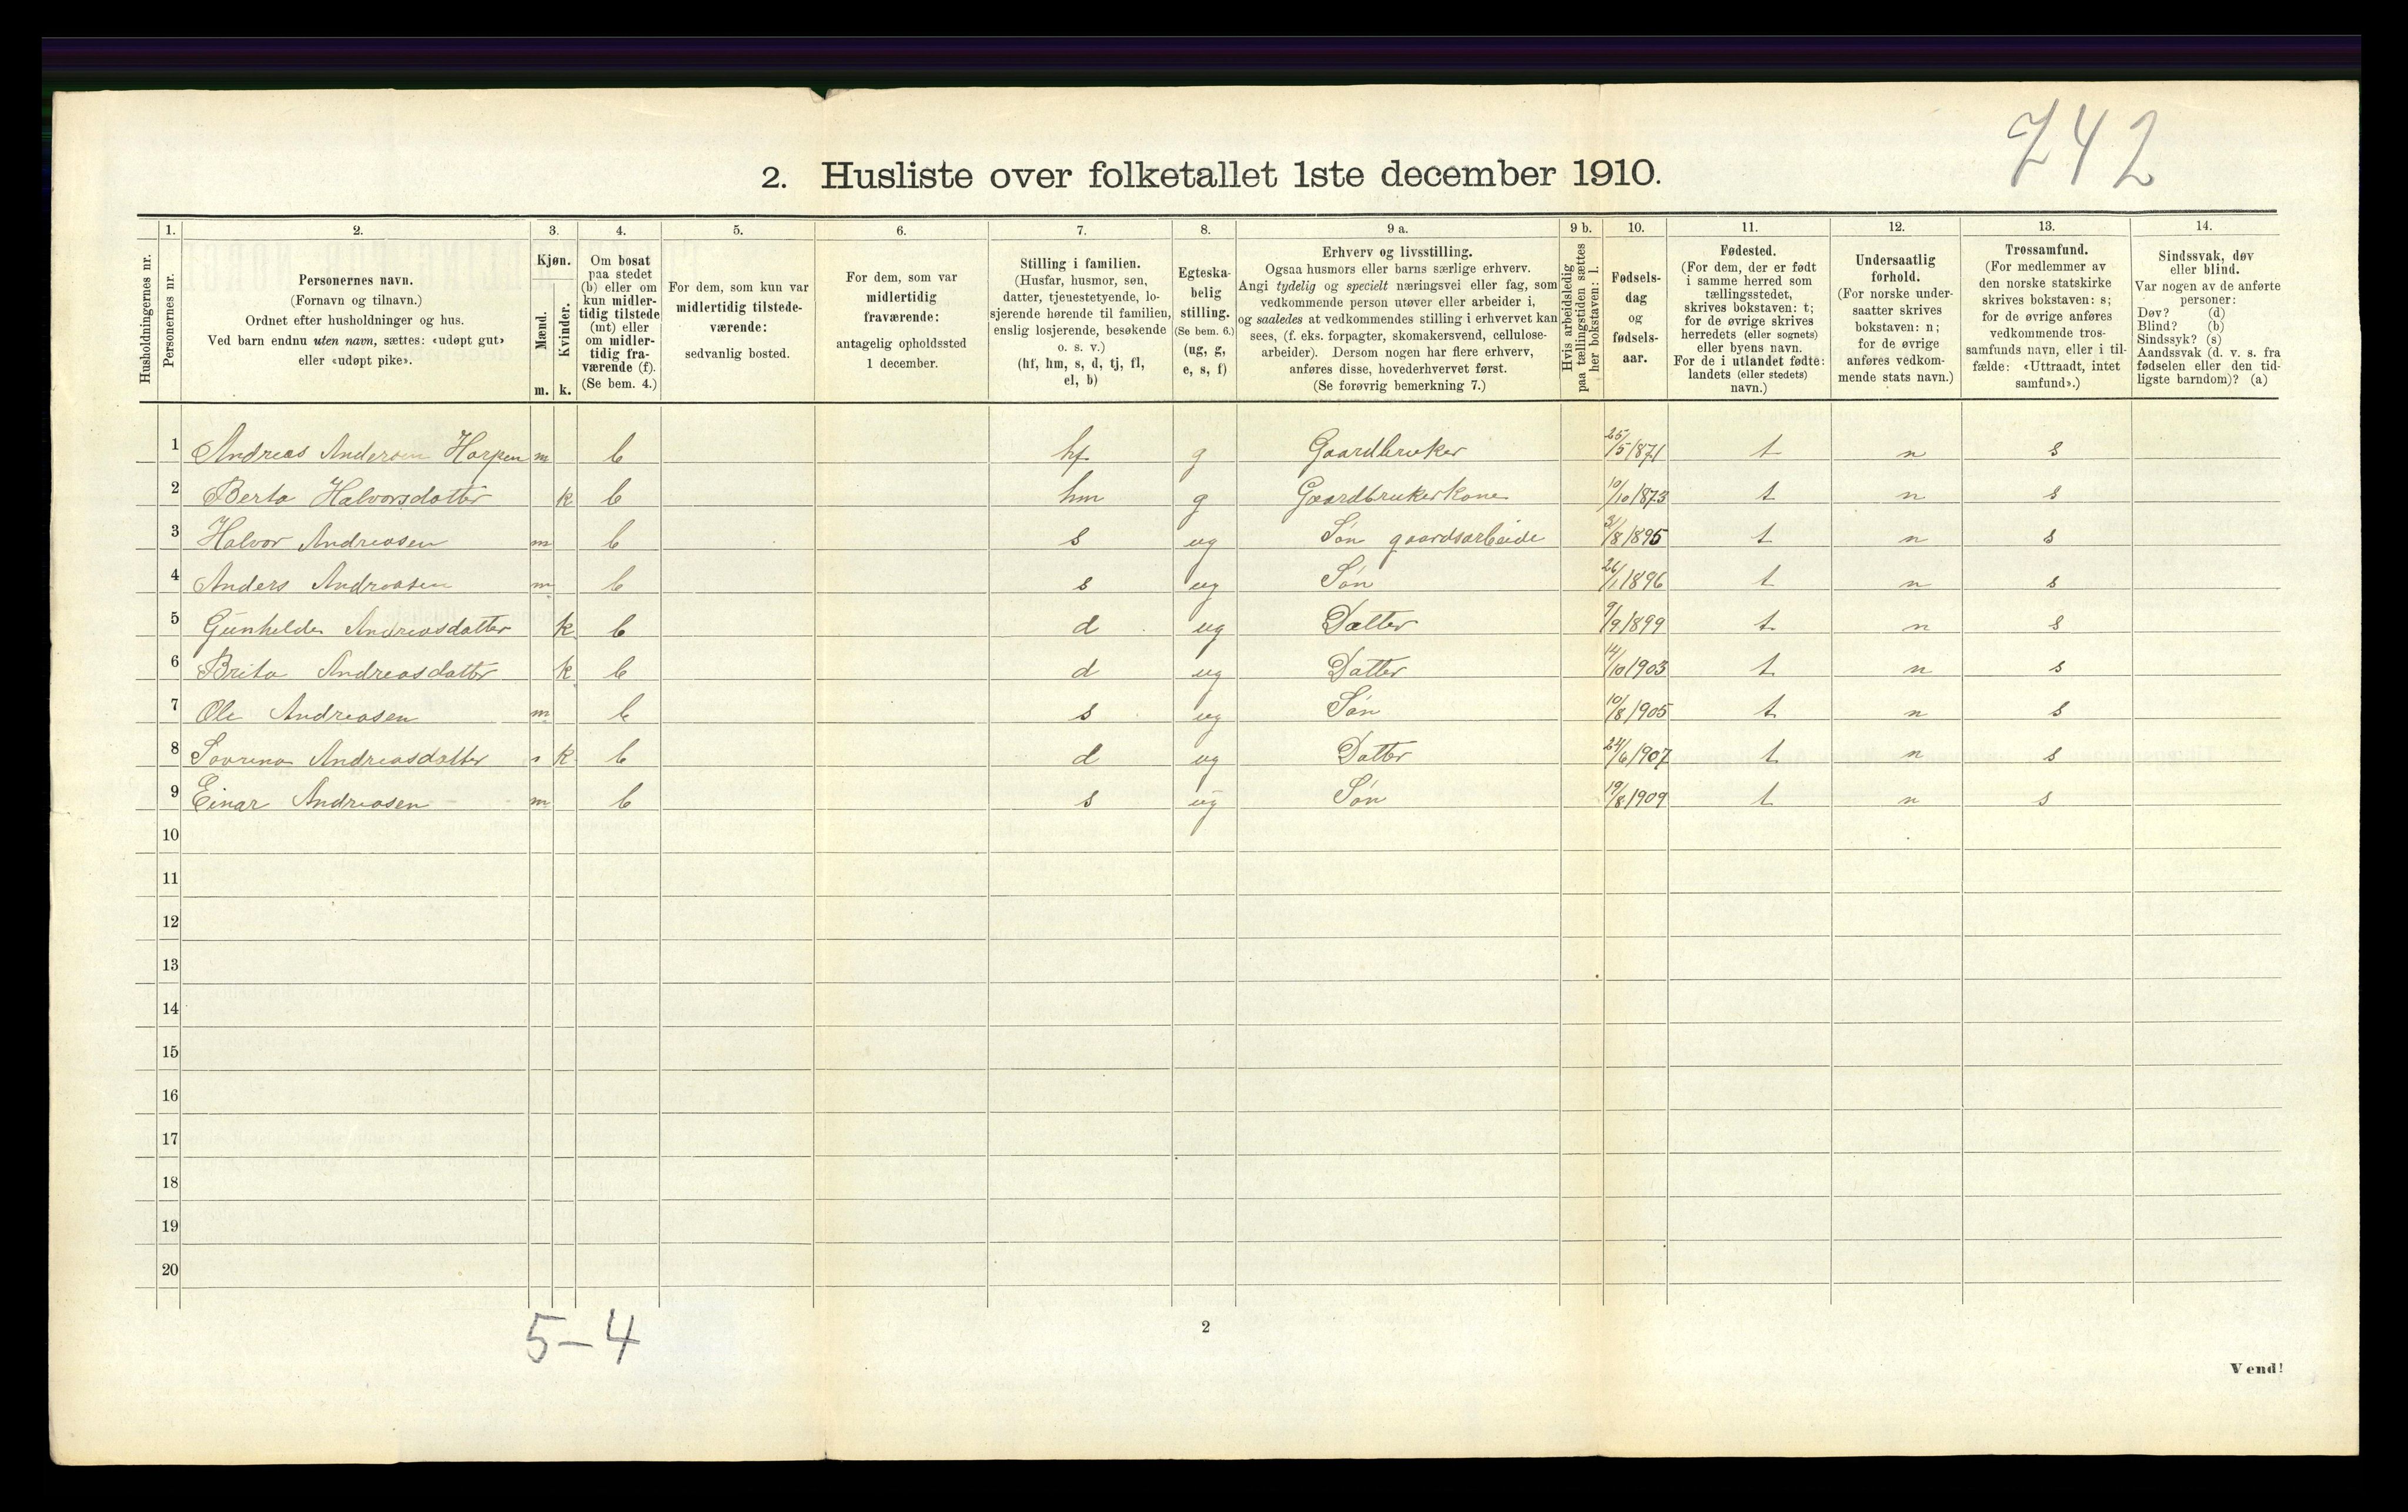 242
2. Husliste over folketallet 1ste december 1910.
Husholdningernes nr.
1.
Personernes nr.
2.
Personernes navn.
(Fornavn og tilnavn.)
Ordnet efter husholdninger og hus.
Ved barn endnu uten navn, sættes: «udøpt gut»
eller «udøpt pike».
3.
Kjøn.
Mænd.
m.
Kvinder.
k.
4.
Om bosat
paa stedet
(b) eller om
kun midler-
tidig tilstede
(mt) eller
om midler-
tidig fra-
værende (f).
(Se bem. 4.)
5.
For dem, som kun var
midlertidig tilstede-
værende:
sedvanlig bosted.
6.
For dem, som var
midlertidig
fraværende:
antagelig opholdssted
1 december.
7.
Stilling i familien.
(Husfar, husmor, søn,
datter, tjenestetyende, lo-
sjerende hørende til familien,
enslig losjerende, besøkende
o. s. v.)
(hf, hm, s, d, tj, fl,
el, b)
8.
Egteska-
belig
stilling.
(Se bem. 6.)
(ug, g,
e, s, f)
9 a.
Erhverv og livsstilling.
Ogsaa husmors eller barns særlige erhverv.
Angi tydelig og specielt næringsvei eller fag, som
vedkommende person utøver eller arbeider i,
og saaledes at vedkommendes stilling i erhvervet kan
sees, (f. eks. forpagter, skomakersvend, cellulose-
arbeider). Dersom nogen har flere erhverv,
anføres disse, hovederhvervet først.
(Se forøvrig bemerkning 7.)
9 b.
Hvis arbeidsledig
paa tællingstiden sættes
her bokstaven: l.
10.
Fødsels-
dag
og
fødsels-
aar.
11.
Fødested.
(For dem, der er født
i samme herred som
tællingsstedet,
skrives bokstaven: t;
for de øvrige skrives
herredets (eller sognets)
eller byens navn.
For de i utlandet fødte:
landets (eller stedets)
navn.)
12.
Undersaatlig
forhold.
(For norske under-
saatter skrives
bokstaven: n;
for de øvrige
anføres vedkom-
mende stats navn.)
13.
Trossamfund.
(For medlemmer av
den norske statskirke
skrives bokstaven: s;
for de øvrige anføres
vedkommende tros-
samfunds navn, eller i til-
fælde: «Uttraadt, intet
samfund».)
14.
Sindssvak, døv
eller blind.
Var nogen av de anførte
personer:
Døv? (d)
Blind? (b)
Sindssyk? (s)
Aandssvak (d. v. s. fra
fødselen eller den tid-
ligste barndom)? (a)
1 Andreas Andersen Harpen m b hf g Gaardbruker 25/5 1871 t n s
2 Berta Halvorsdatter k b hm g Gaardbrukerkone 10/10 1873 t n s
3 Halvor Andreasen m b s ug Søn gaardsarbeide 3/8 1895 t n s
4 Anders Andreasen m b s ug Søn 26/1 1896 t n s
5 Gunhilde Andreasdatter k b d ug Datter 9/9 1899 t n s
6 Brita Andreasdatter k b d ug Datter 14/10 1903 t n s
7 Ole Andreasen m b s ug Søn 10/8 1905 t n s
8 Andreasdatter k b d ug Datter 24/6 1907 t n s
9 Einar Andreasen m b s ug Søn 19/8 1909 t n s
10
11
12
13
14
15
16
17
18
19
20
5-4
2
Vend!